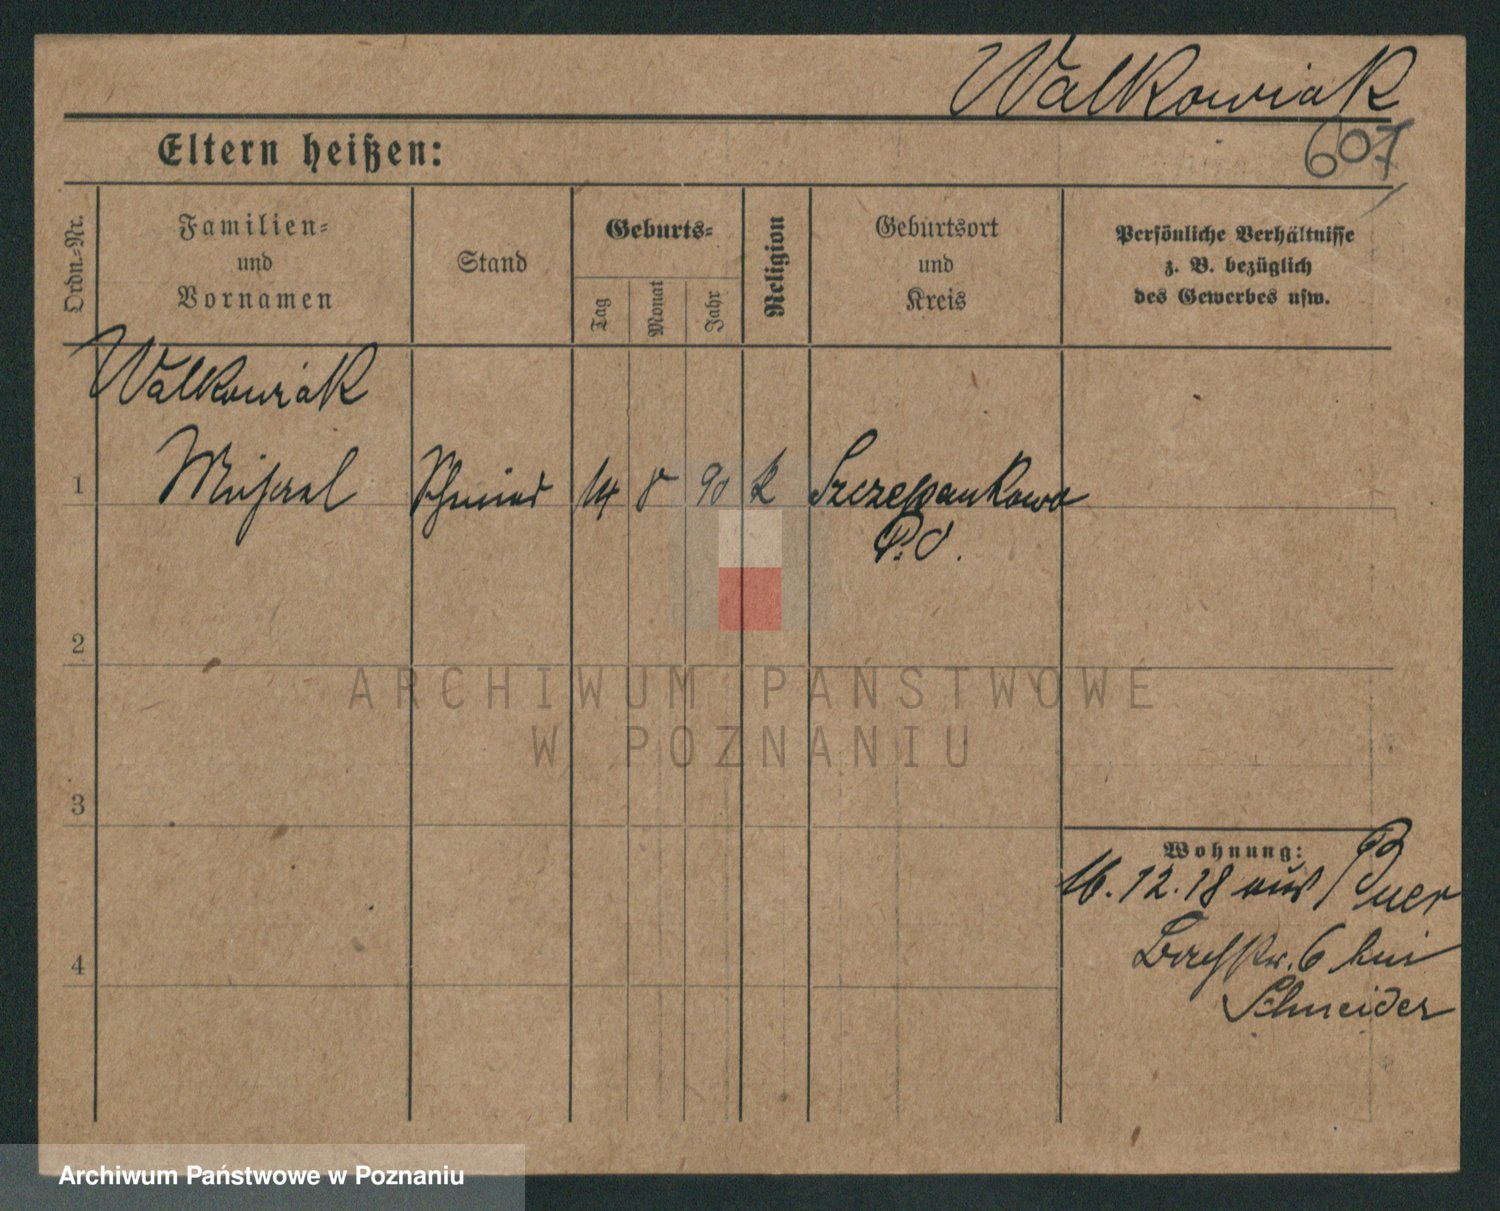 Walkowiak
607
Eltern heißen:
Ordn.-Nr.
Familien-
und
Vornamen
Stand
Geburts-
Tag
Monat
Jahr
Religion
Geburtsort
und
Kreis
Persönliche Verhältnisse
z. B. bezüglich
des Gewerbes usw.
Walkowiak
1 Michael Schmied 14 8 90 k Szczepankowo
P.O.
2
3
4
Wohnung:
16.12.18 aus Buer
Bachstr. 6 bei
Schneider
ARCHIWUM PAŃSTWOWE
W POZNANIU
Archiwum Państwowe w Poznaniu